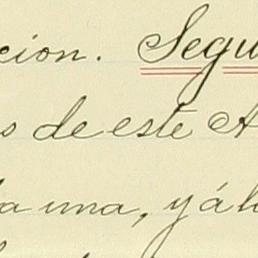 cion. Segu
s de este A
la una, y á l